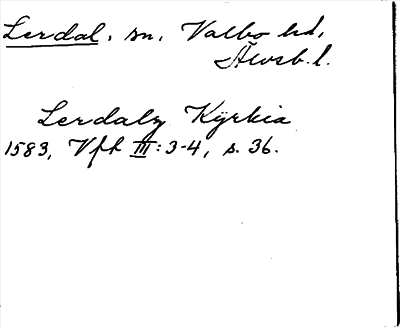 Lerdal, sn, Valbo hd,
Älvsb. l.
Lerdalz Kÿrkia
1583, Vfh III:3-4, s. 36.